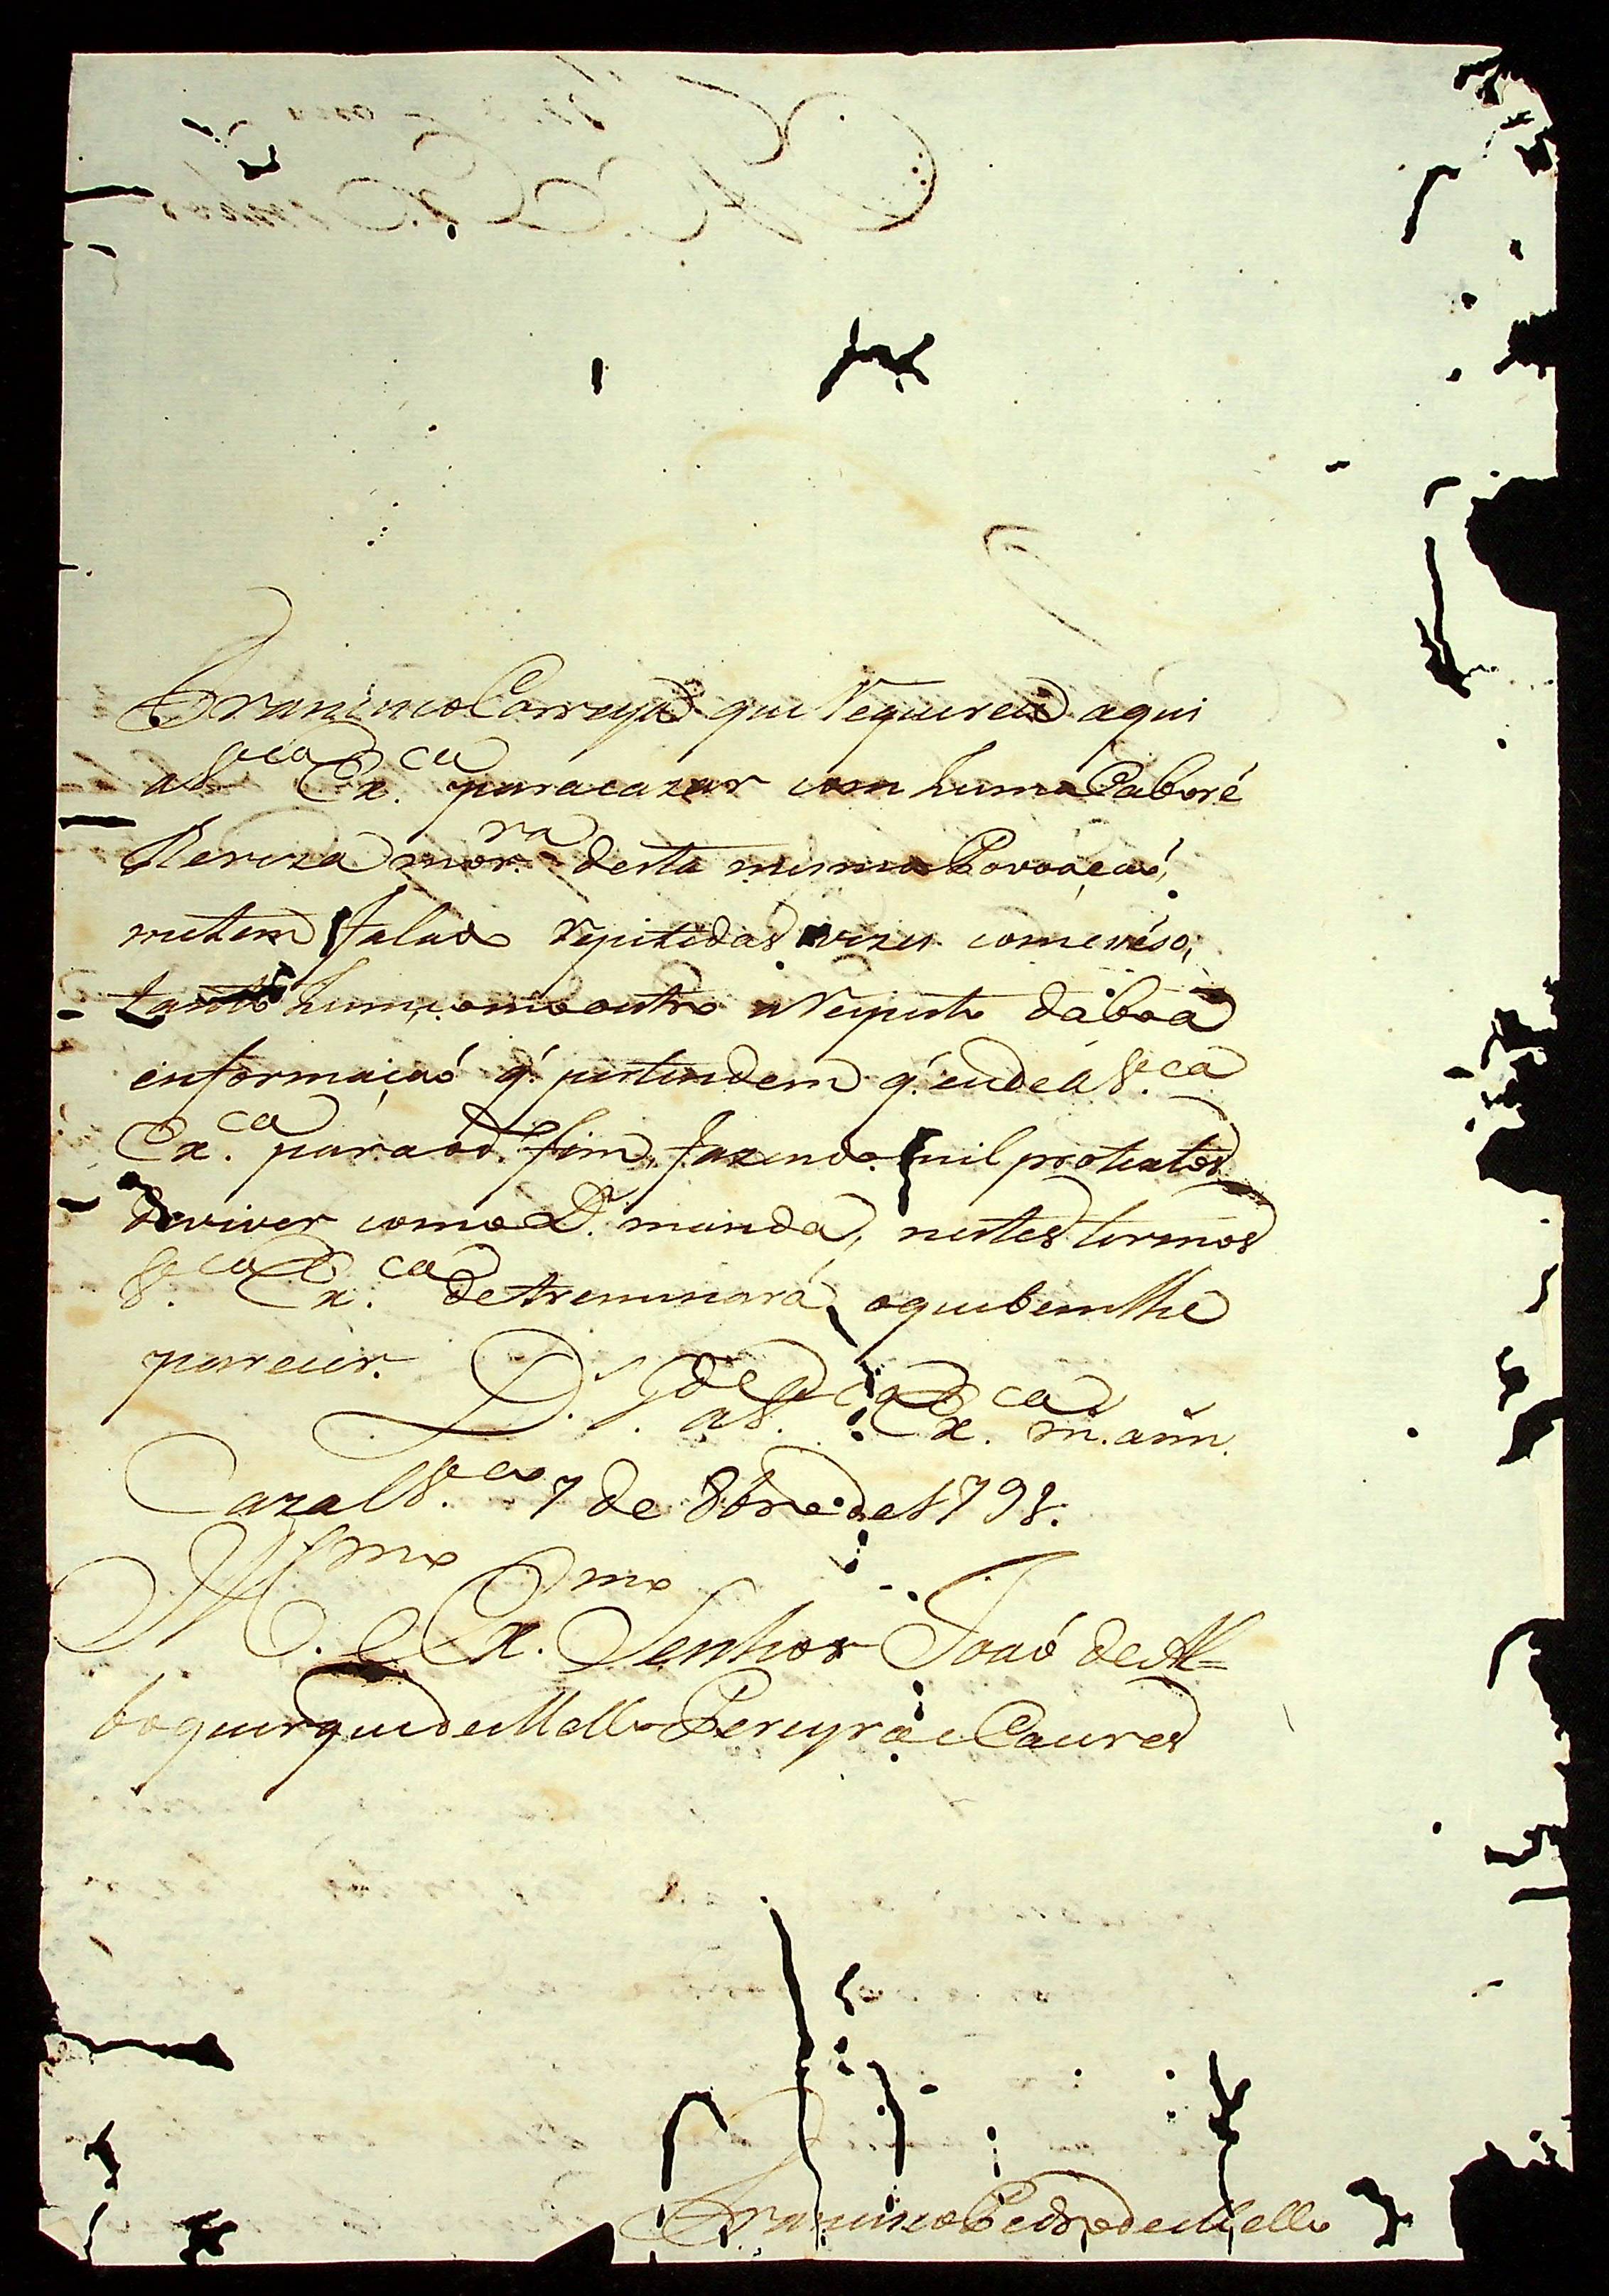 Francisco Correya que Requereu aqui
a V.ca Ex.ca para cazar com huma Caboré
Tereza mor.ra desta mesma Povoação,
metem falado repitidas vezes comeréso,
tanto hum, como outro a Respeito da boa
enformação q. pertendem q. eu dê a V.ca
Ex.ca para o d.o fim, fazendo mil protestos
de viver como D.s manda, nestes termos
V.ca Ex.ca detreminará, o que bem lhe
parecer. D.s G.de a V.ca Ex.ca m. ann.
Cazal V.co 7 de 8bro de 1798.
Ill.mo e Ex.mo Senhor João de Al=
boquerque de Mello Pereyra e Caures
Francisco Pedro de Mello